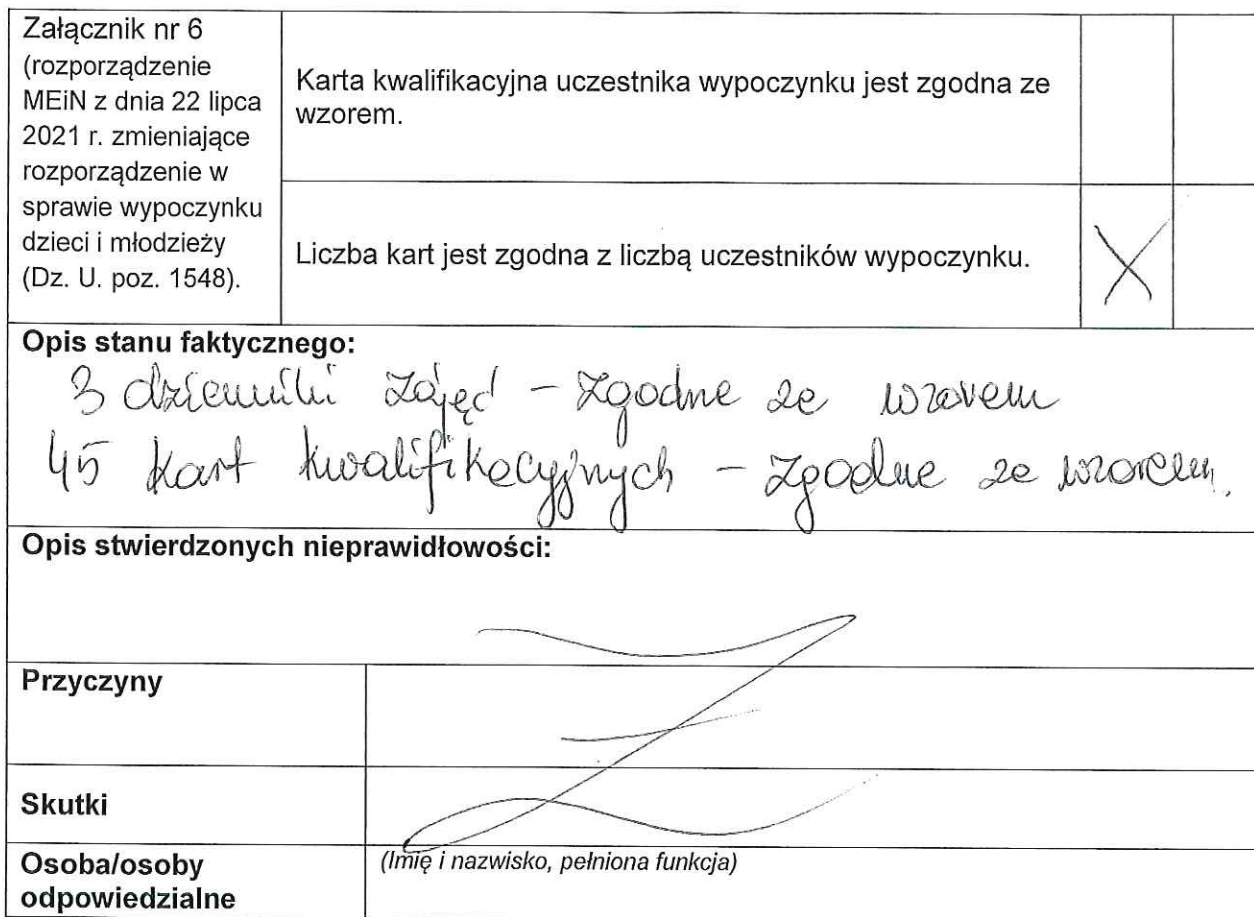 Załącznik nr 6
(rozporządzenie
MEiN z dnia 22 lipca
2021 r. zmieniające
rozporządzenie w
sprawie wypoczynku
dzieci i młodzieży
(Dz. U. poz. 1548).
Karta kwalifikacyjna uczestnika wypoczynku jest zgodna ze
wzorem.
Liczba kart jest zgodna z liczbą uczestników wypoczynku.
X
Opis stanu faktycznego:
3 dzienniki zajęć - zgodne ze wzorem
45 kart kwalifikacyjnych - zgodne ze wzorem.
Opis stwierdzonych nieprawidłowości:
Przyczyny
Skutki
Osoba/osoby
odpowiedzialne
(Imię i nazwisko, pełniona funkcja)